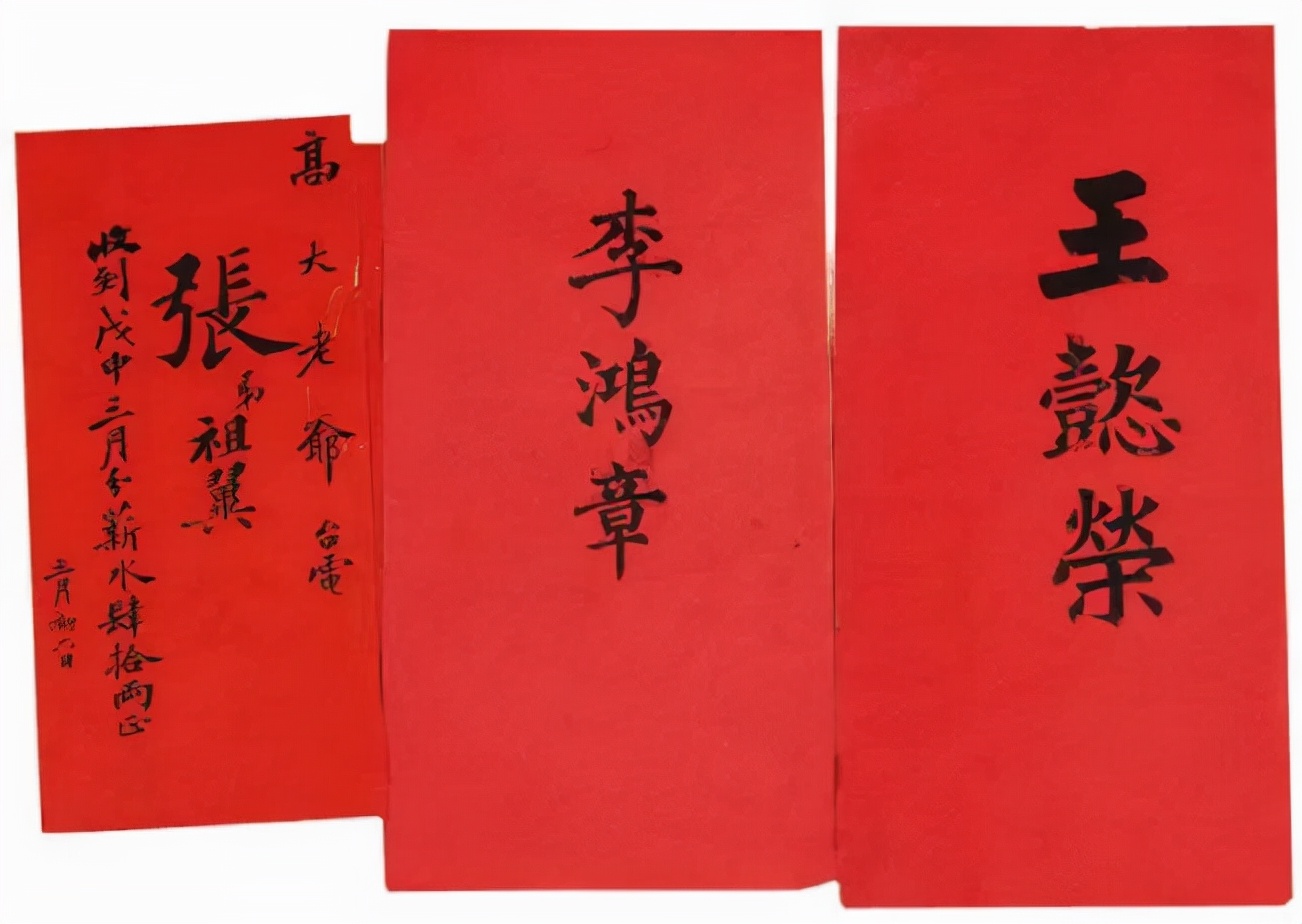 王懿榮
李鴻章
高大老爺台電
張弟祖翼
收到戊申三月分薪水肆拾兩正
三月